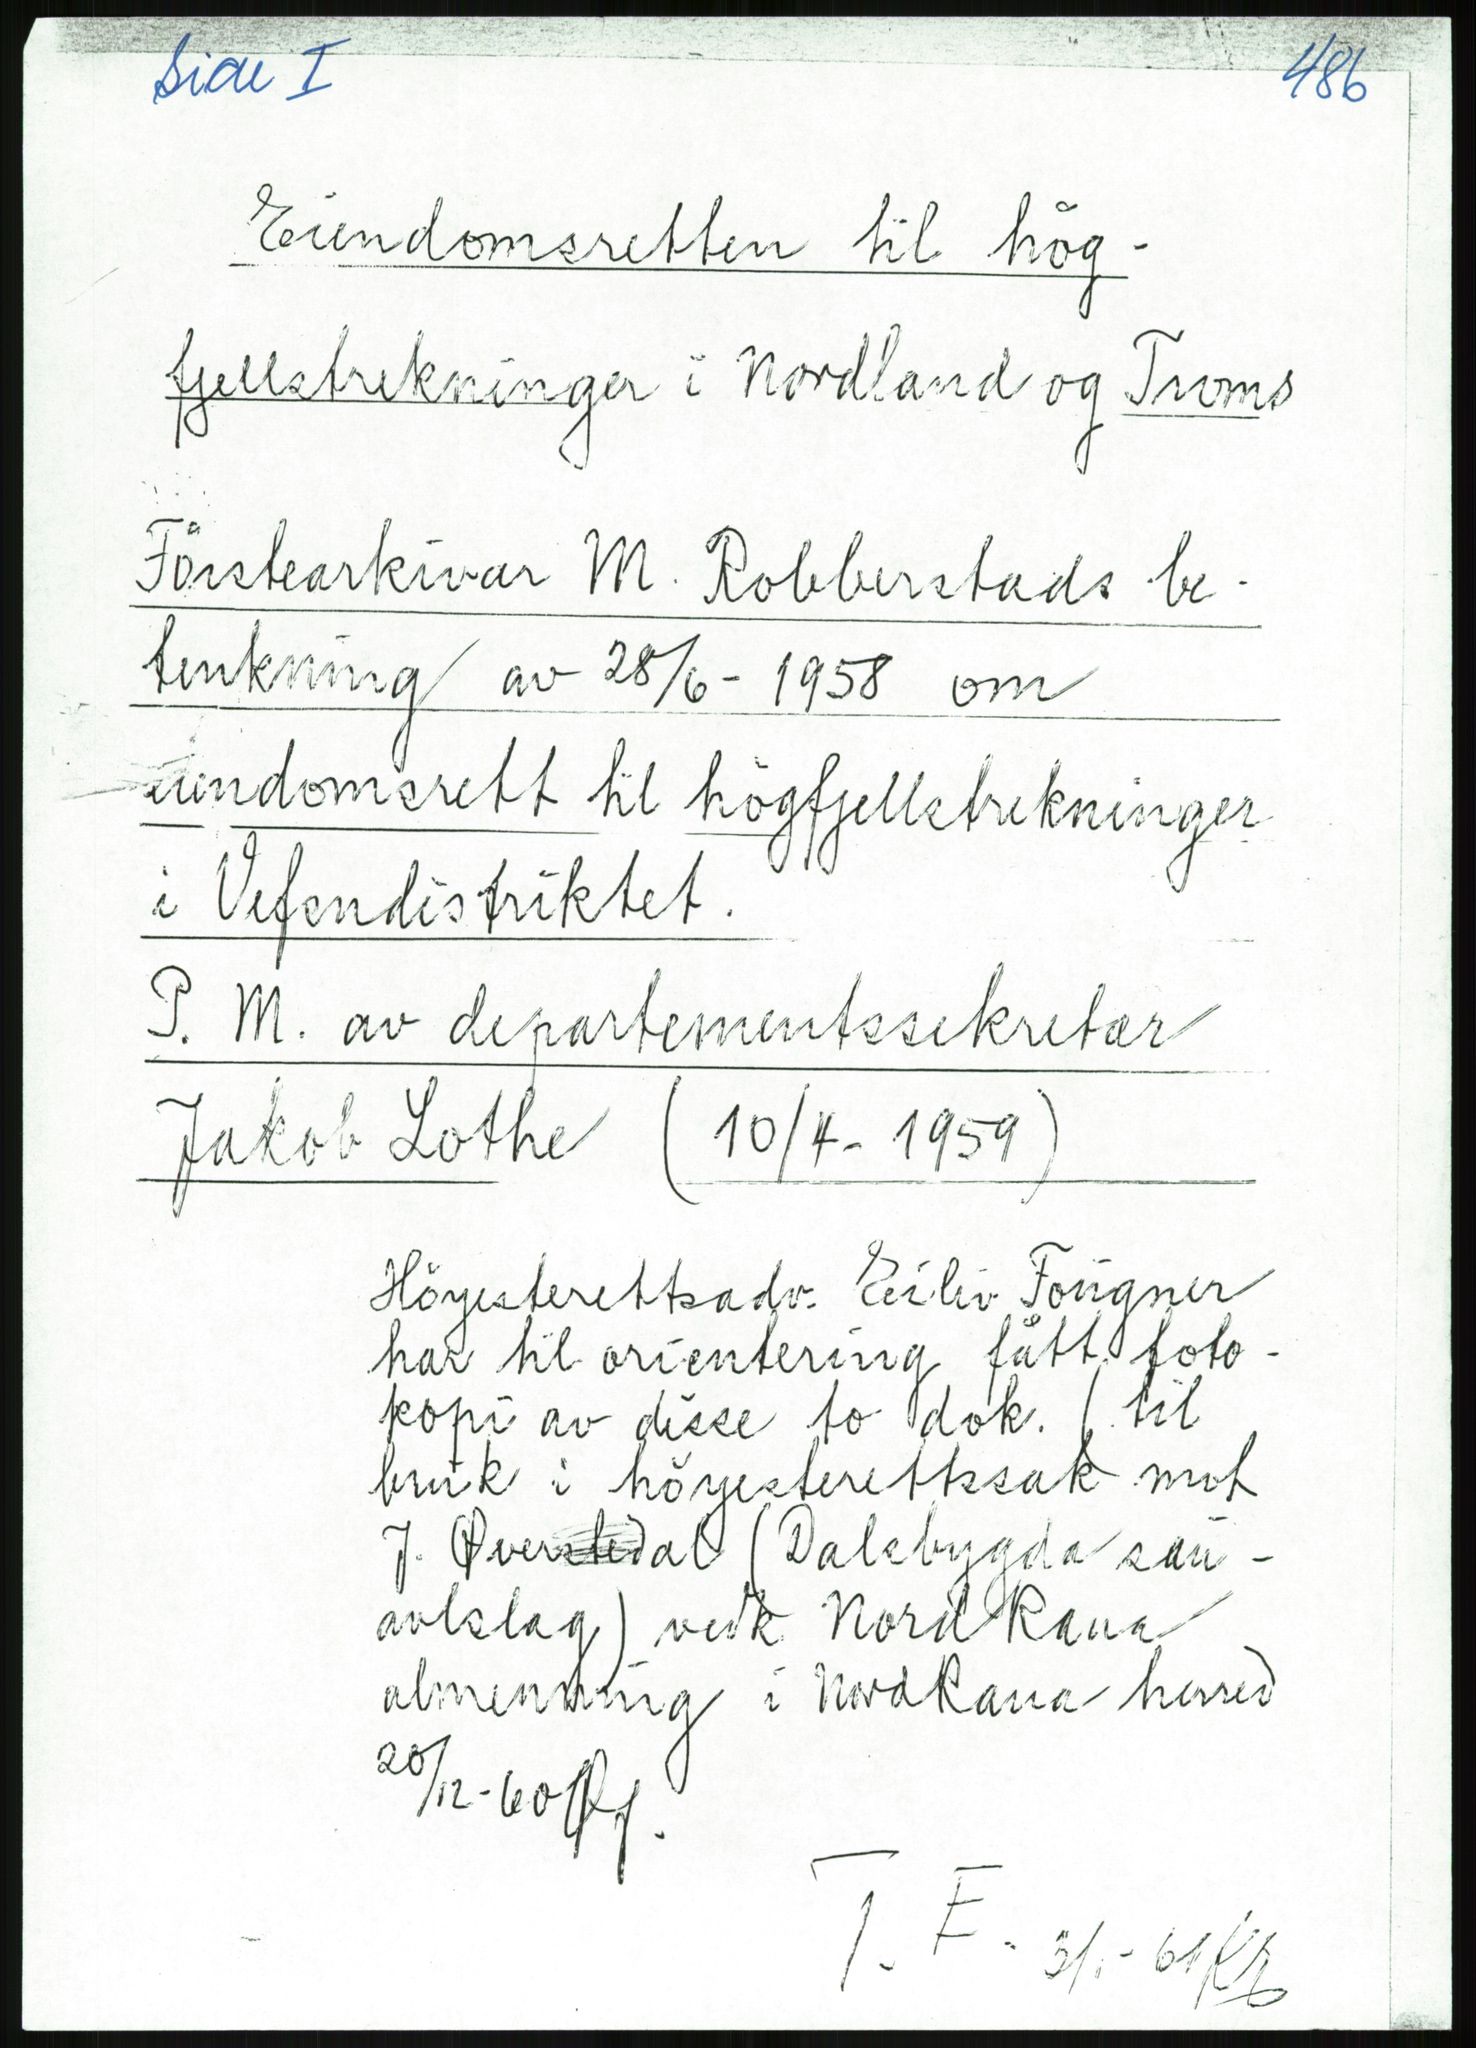 Side I 486
Eiendomsretten til hög-
fjellstrekninger i Nordland og Troms
Förstearkivar M. Robberstads be-
tenkning av 28/6-1958 om
eiendomsrett til högfjellstrekninger
i Vefsndistriktet.
P. M. av departementssekretær
Jakob Lothe (10/4-1959)
Höyesterettsadv. Eiliv Fougner
har til orientering fått foto-
kopi av disse to dok. (til
bruk i höyesterettssak mot
J. Øverstedal (Dalsbygda sau-
avlslag) vedk. Nord Rana
almenning i Nord Rana herred
20/12-60
T. F. 3/1-61